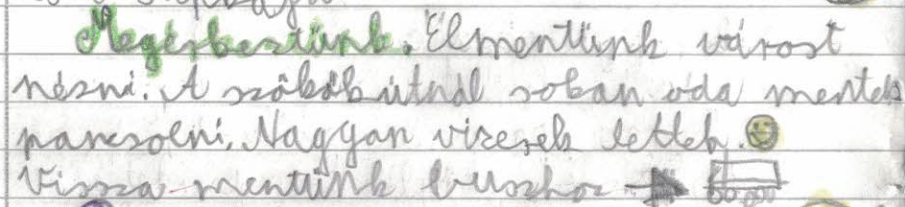 Megérkeztünk. Elmentünk várost
nézni. A szökőkútnál sokan oda mentek
pancsolni. Nagyon vizesek lettek.
Vissza mentünk buszhoz